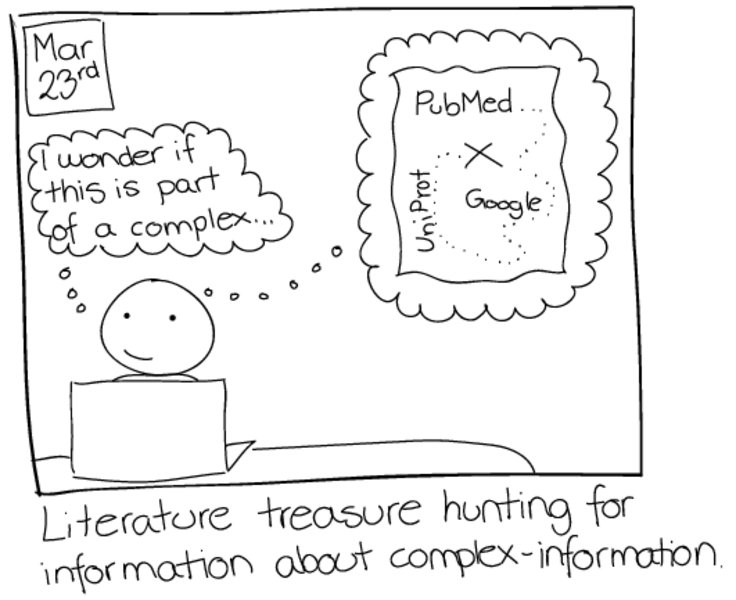 Mar
23rd
I wonder if
this is part
of a complex...
PubMed...
UniProt
Google
Literature treasure hunting for
information about complex-information.